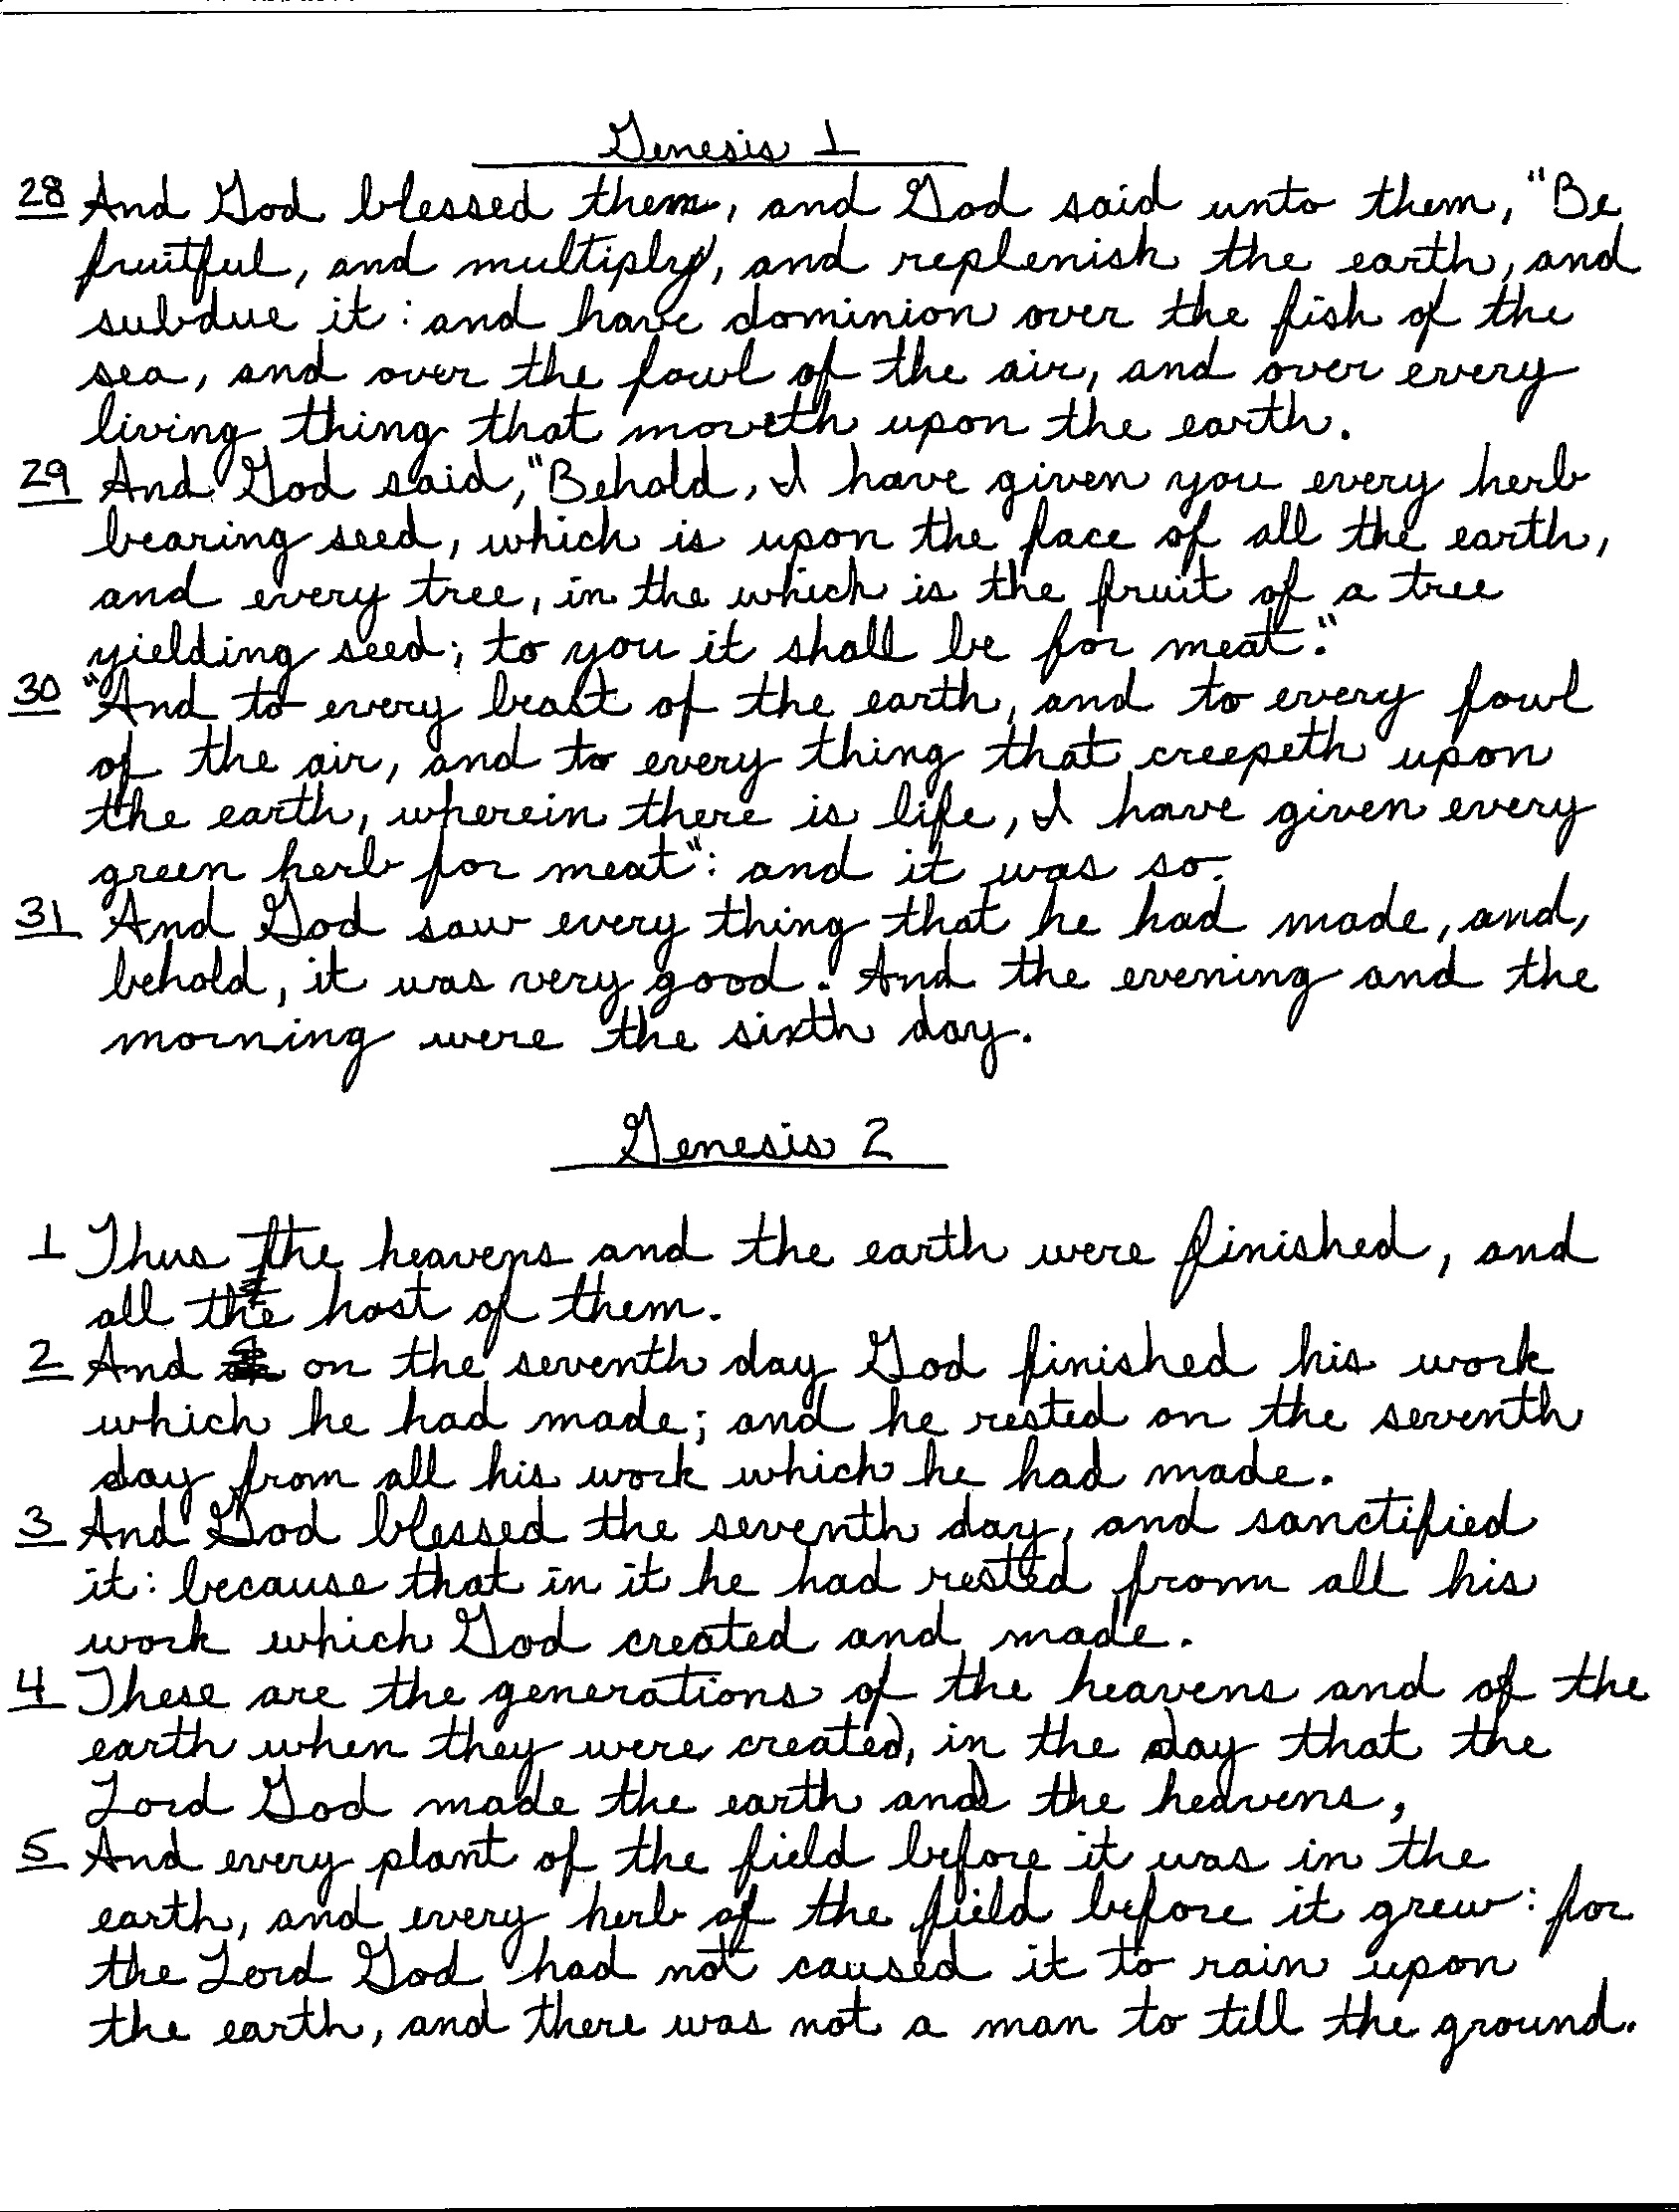 Genesis 1
28 And God blessed them, and God said unto them, "Be
fruitful, and multiply, and replenish the earth, and
subdue it: and have dominion over the fish of the
sea, and over the fowl of the air, and over every
living thing that moveth upon the earth.
29 And God said, "Behold, I have given you every herb
bearing seed, which is upon the face of all the earth,
and every tree, in the which is the fruit of a tree
yielding seed; to you it shall be for meat."
30 "And to every beast of the earth, and to every fowl
of the air, and to every thing that creepeth upon
the earth, wherein there is life, I have given every
green herb for meat": and it was so.
31 And God saw every thing that he had made, and,
behold, it was very good. And the evening and the
morning were the sixth day.
Genesis 2
1 Thus the heavens and the earth were finished, and
all the host of them.
2 And on the seventh day God finished his work
which he had made; and he rested on the seventh
day from all his work which he had made.
3 And God blessed the seventh day, and sanctified
it: because that in it he had rested from all his
work which God created and made.
4 These are the generations of the heavens and of the
earth when they were created, in the day that the
Lord God made the earth and the heavens,
5 And every plant of the field before it was in the
earth, and every herb of the field before it grew: for
the Lord God had not caused it to rain upon
the earth, and there was not a man to till the ground.